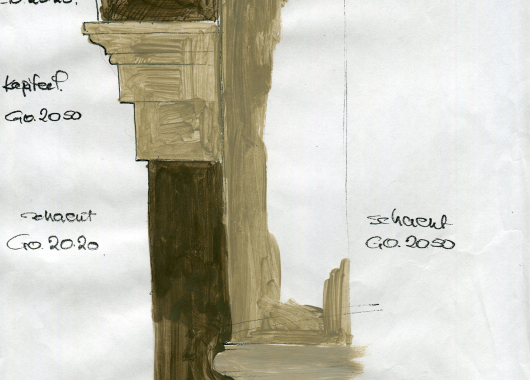 Kapiteel.
G0.20 50
schacht
G0.20.20
schacht
G0.20 50